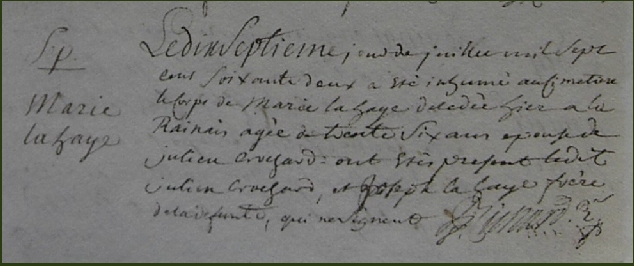 S. p.
Marie
la haye
Ledixseptieme jour de juillet mil sept
cens soixante deux a eté inhumé au cimetiere
le corps de Marie la haye decedée hier a la
Rainais agée de trente six ans epouse de
julien Crochard : ont etés present ledit
julien Crochard, et Joseph la haye frère
de la defunte, qui ne signent